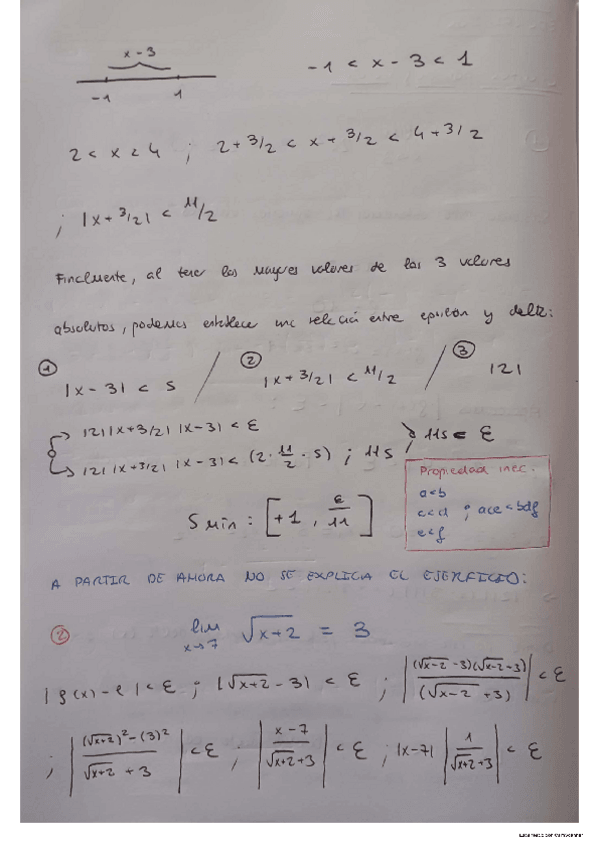 x-3
-1 < x-3 < 1
-1 1
2 < x < 4 ; 2+3/2 < x+3/2 < 4+3/2
; |x+3/2| < 11/2
Finalmente, al tener los mayores valores de los 3 valores
absolutos, podemos establece una relació entre epsilon y delta:
① |x-3| < δ / ② |x+3/2| < 11/2 / ③ |2|
|2||x+3/2||x-3| < ε
|2||x+3/2||x-3| < (2·11/2·δ) ; 11δ ; 11δ = ε
Propiedad inec:
a<b
c<d ; ace<bdf
e<f
δ min : [+1, ε/11]
A PARTIR DE AHORA NO SE EXPLICA EL EJERCICIO:
② lim x→7 √x+2 = 3
|f(x)-l| < ε ; |√x+2 -3| < ε ; |(√x-2 -3)(√x-2+3)/(√x-2 +3)| < ε
; |(√x+2)²-(3)²/√x+2 +3| < ε ; |x-7/√x+2+3| < ε ; |x-7| |1/√x+2+3| < ε